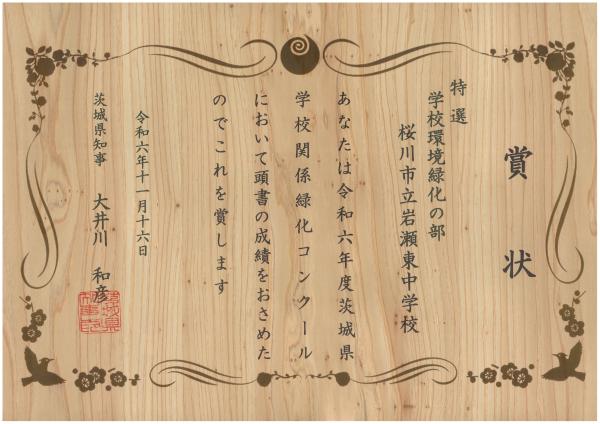 賞状
特選
学校環境緑化の部
桜川市立岩瀬東中学校
あなたは令和六年度茨城県
学校関係緑化コンクール
において頭書の成績をおさめた
のでこれを賞します
令和六年十一月十六日
茨城県知事 大井川 和彦